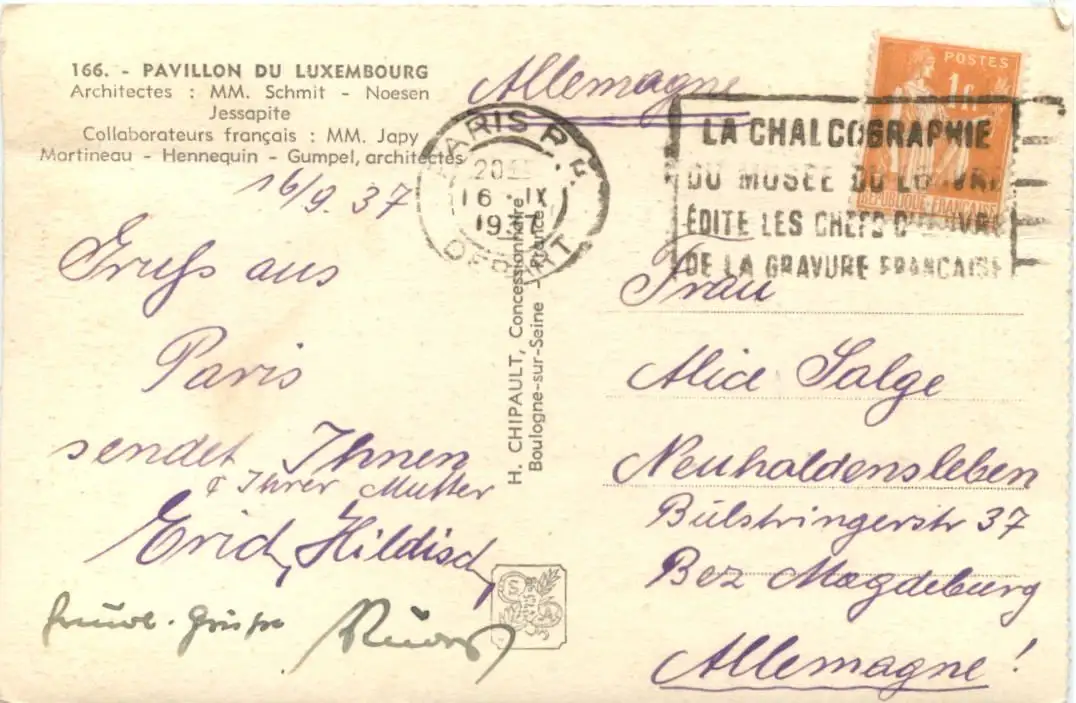 166. - PAVILLON DU LUXEMBOURG
Architectes : MM. Schmit - Noesen
Jessapite
Collaborateurs français : MM. Japy
Martineau - Hennequin - Gumpel, architectes
16/9. 37
Gruß aus
Paris
sendet Ihnen
& Ihrer Mutter
Erich Hildisch
freundl. Grüße
H. CHIPAULT, Concessionnaire
Boulogne-sur-Seine - France
Allemagne
PARIS R.P.
20
16 IX
1937
DEPART
LA CHALCOGRAPHIE
DU MUSEE DU LOUVRE
ÉDITE LES CHEFS D'ŒUVRE
DE LA GRAVURE FRANCAISE
POSTES
1f
RÉPUBLIQUE-FRANÇAISE
Frau
Alice Salge
Neuhaldensleben
Bülstringerstr 37
Bez Magdeburg
Allemagne!